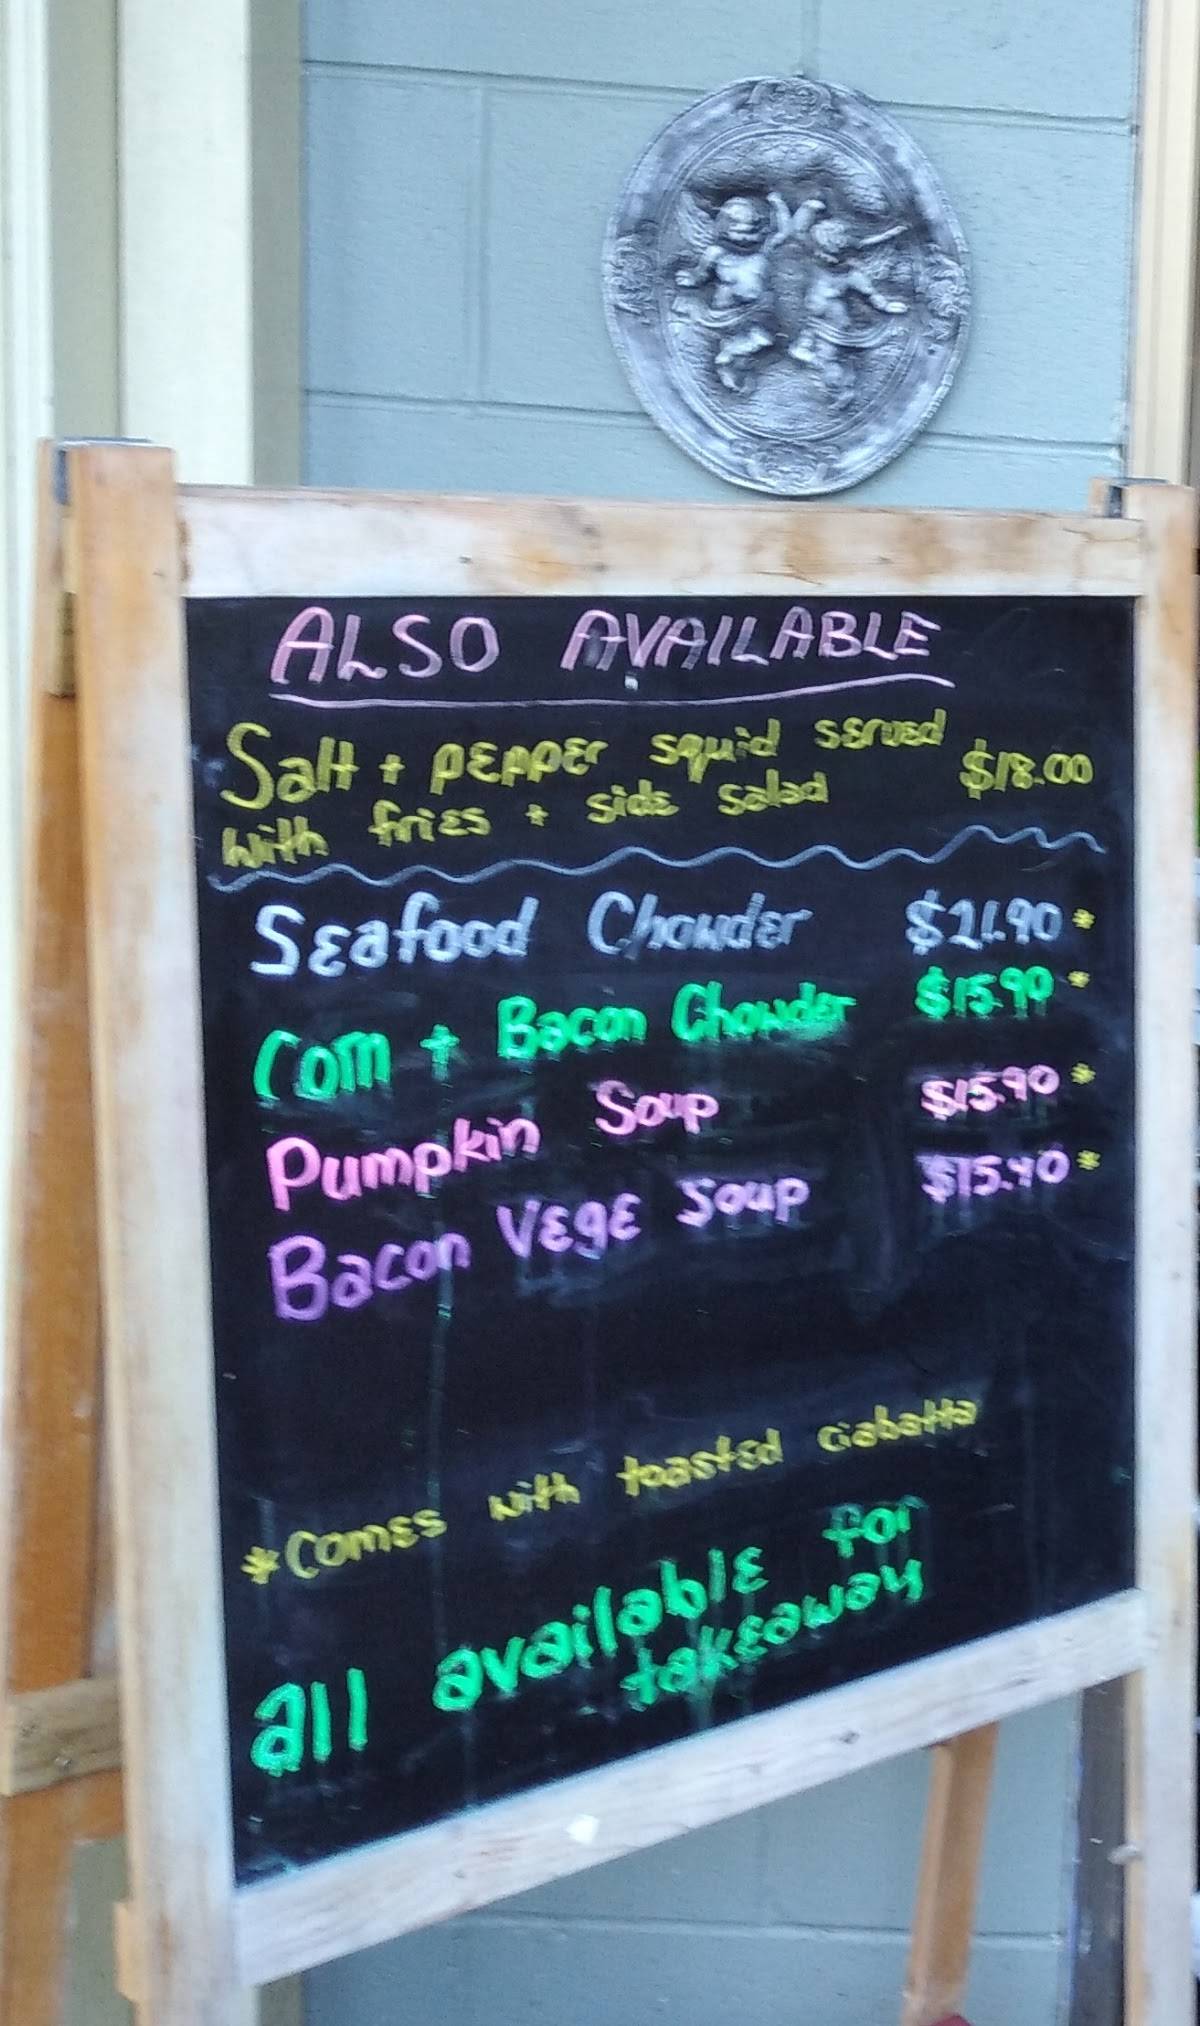 ALSO AVAILABLE
Salt + pepper squid served
with fries + side salad $18.00
Seafood Chowder $21.90 *
Corn + Bacon Chowder $15.90 *
Pumpkin Soup $15.90 *
Bacon Vege Soup $15.90 *
*Comes with toasted ciabatta
all available for
takeaway